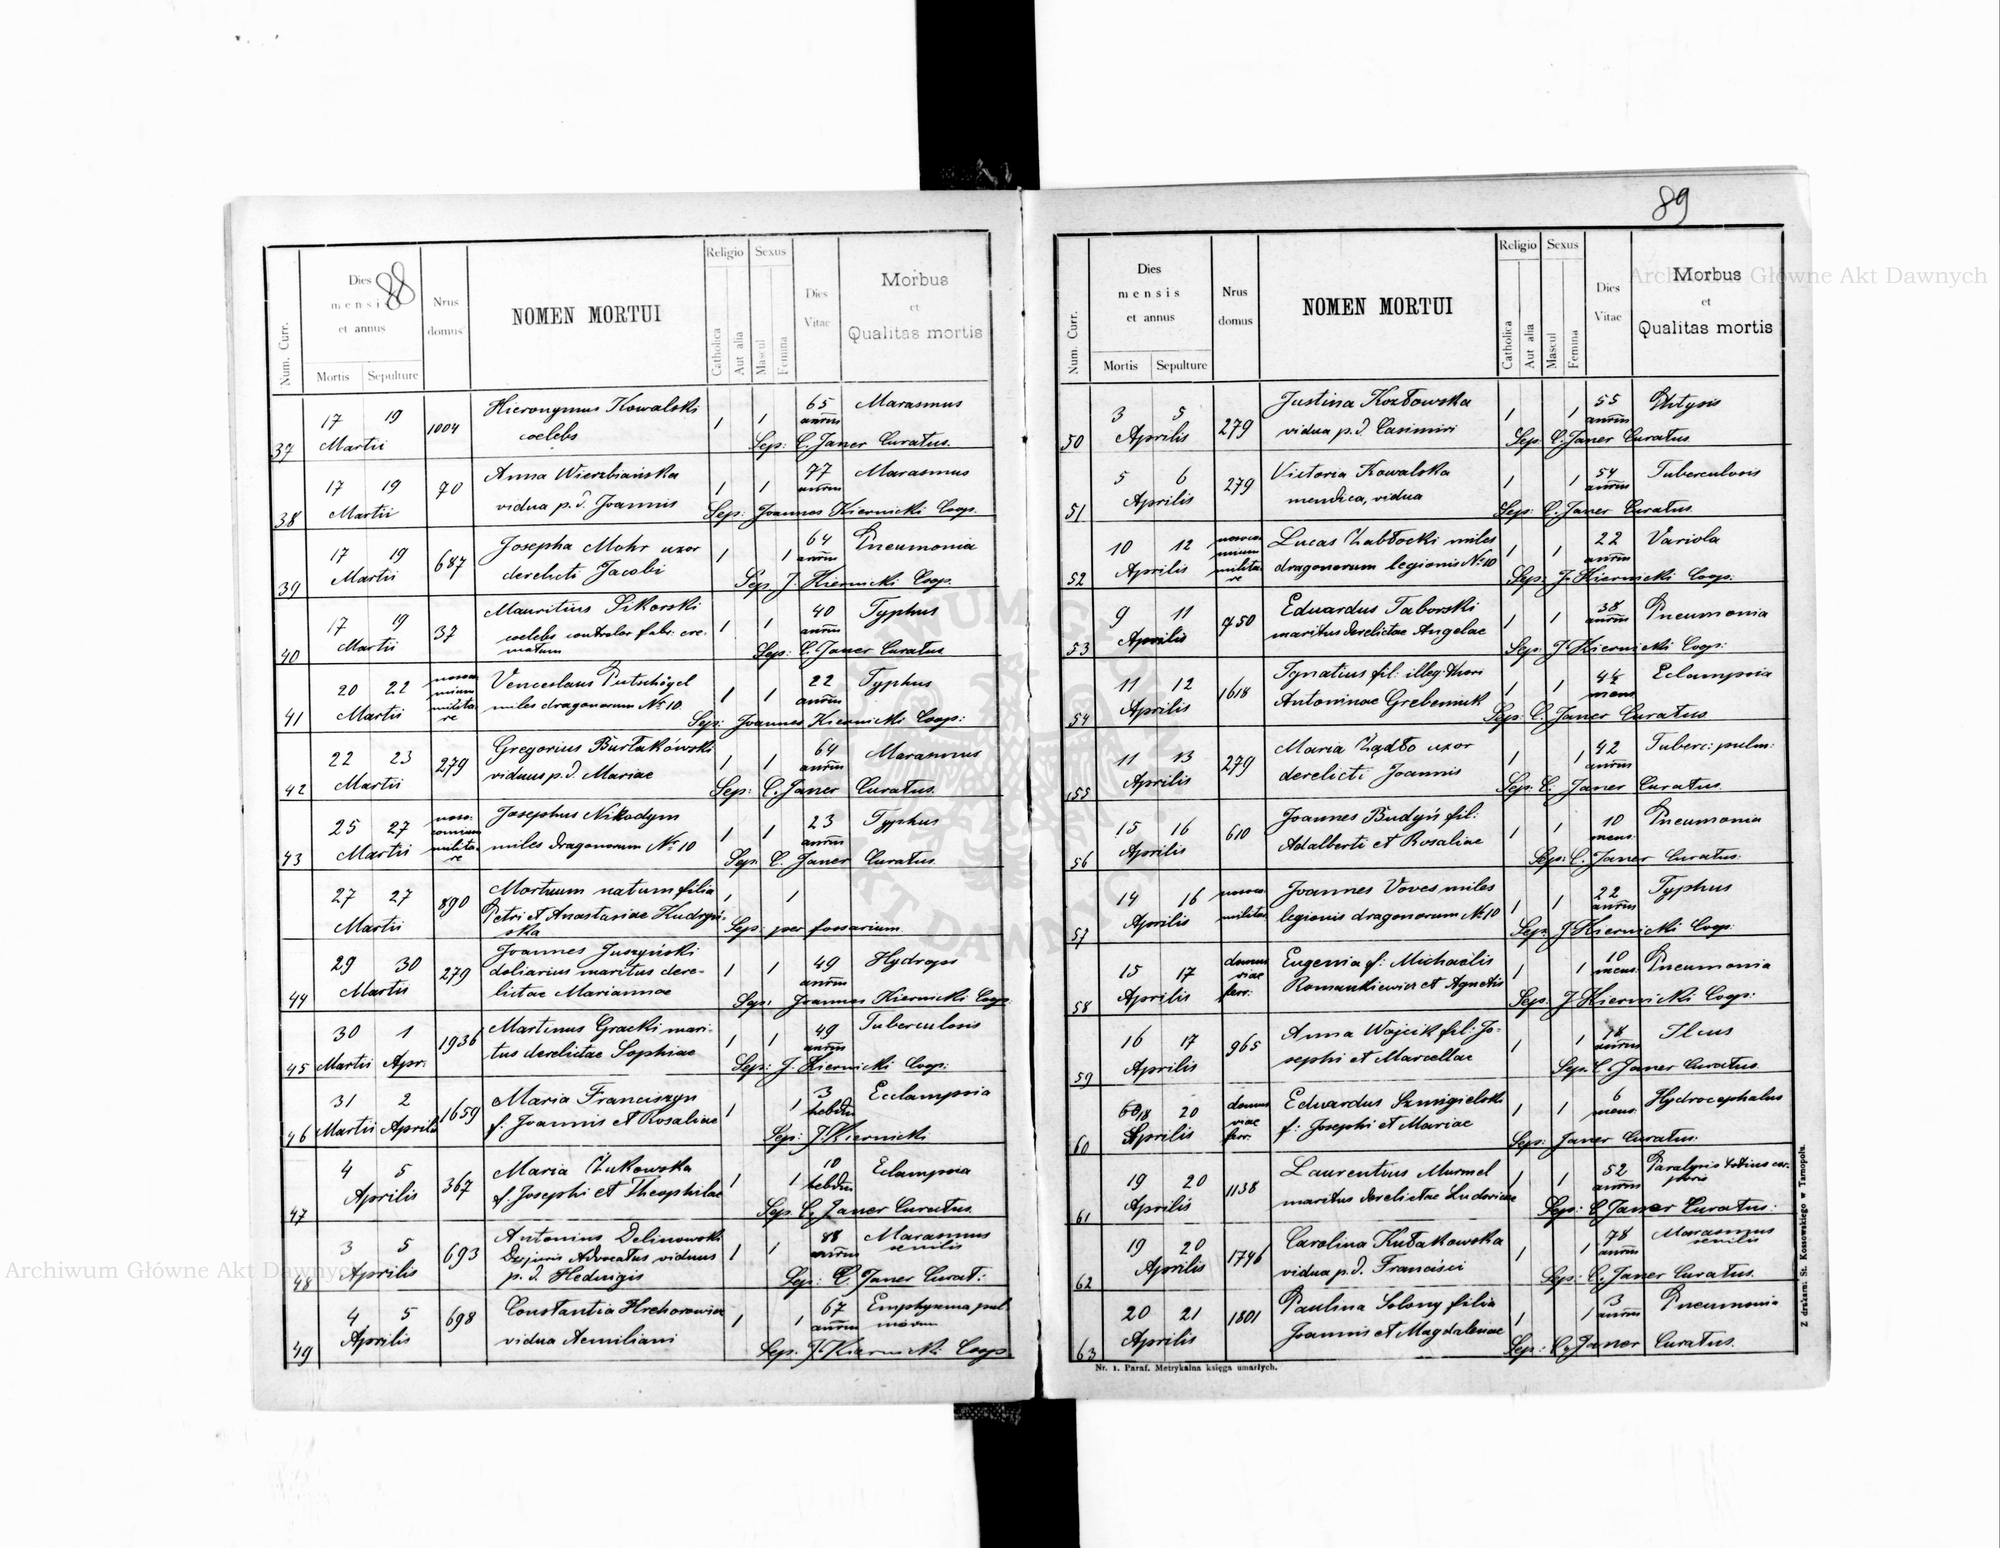 88
Num. Curr.
Dies
mensis
et annus
Mortis Sepulture
Nrus
domus
NOMEN MORTUI
Religio
Catholica
Aut alia
Sexus
Mascul
Femina
Dies
Vitae
Morbus
et
Qualitas mortis
37 17 19 Martii 1004 Hieronymus Kowalski 1 1 65 annrum Marasmus
coelebs Sep: C. Janer Curatus.
38 17 19 Martii 70 Anna Wierzbiańska 1 1 77 annrum Marasmus
vidua p. d. Joannis Sep: Joannes Kiernicki Coop.
39 17 19 Martii 687 Josepha Mohr uxor 1 1 64 annrum Pneumonia
derelicti Jacobi Sep. J. Kiernicki Coop.
40 17 19 Martii 37 Mauritius Sikorski 1 1 40 annrum Typhus
coelebs controlor fabr: cre-
matum Sep: C. Janer Curatus
41 20 22 Martii nosocomium militare Venceslaus Putschögel 1 1 22 annrum Typhus
miles dragonorum No 10 Sep: Joannes Kiernicki Coop:
42 22 23 Martii 279 Gregorius Burłakówski 1 1 64 annrum Marasmus
viduus p. d. Mariae Sep: C. Janer Curatus.
43 25 27 Martii nosocomium militare Josephus Nikodym 1 1 23 annrum Typhus
miles dragonorum No 10 Sep: C. Janer Curatus.
27 27 Martii 890 Mortuum natum filia 1 1
Petri et Anastasiae Kudryń-
ska Sep: per fossarium
44 29 30 Martii 279 Joannes Juszyński 1 1 49 annrum Hydrops
doliarius maritus dere-
lictae Mariannae Sep: Joannes Kiernicki Coop
45 30 1 Martii Apr: 1936 Martinus Gracki mari- 1 1 49 annrum Tuberculosis
tus derelictae Sophiae Sep: J. Kiernicki Coop:
46 31 2 Martii Aprilis 1659 Maria Franciszyn 1 1 3 hebdm Ecclampsia
f: Joannis et Rosaliae Sep: J. Kiernicki
47 4 5 Aprilis 367 Maria Żukowska 1 1 10 hebdm Eclampsia
f. Josephi et Theophilae Sep. C. Janer Curatus.
48 3 5 Aprilis 693 Antonius Delinowski 1 1 88 annrum Marasmus senilis
Drjuris Advocatus viduus
p. d. Hedwigis Sep: C. Janer Curat:
49 4 5 Aprilis 698 Constantia Hrehorowicz 1 1 67 annrum Emphysema pulmonum
vidua Aemiliani Sep: J. Kiernicki Coop
89
Num. Curr.
Dies
mensis
et annus
Mortis Sepulture
Nrus
domus
NOMEN MORTUI
Religio
Catholica
Aut alia
Sexus
Mascul
Femina
Dies
Vitae
Morbus
et
Qualitas mortis
50 3 5 Aprilis 279 Justina Kozłowska 1 1 55 annrum Phtysis
vidua p. d. Casimiri Sep: C. Janer Curatus
51 5 6 Aprilis 279 Victoria Kowalska 1 1 54 annrum Tuberculosis
mendica, vidua Sep: C. Janer Curatus.
52 10 12 Aprilis nosocomium militare Lucas Zabłocki miles 1 1 22 annrum Variola
dragonorum legionis No 10 Sep: J. Kiernicki Coop:
53 9 11 Aprilis 450 Eduardus Taborski 1 1 38 annrum Pneumonia
maritus derelictae Angelae Sep: J. Kiernicki Coop:
54 11 12 Aprilis 1618 Ignatius fil: illeg: thori 1 1 4½ mens Eclampsia
Antoninae Grebeniuk Sep: C. Janer Curatus
55 11 13 Aprilis 279 Maria Żądło uxor 1 1 42 annrum Tuberc: pulm:
derelicti Joannis Sep: C. Janer Curatus.
56 15 16 Aprilis 610 Joannes Budyń fil: 1 1 10 mens: Pneumonia
Adalberti et Rosaliae Sep: C. Janer Curatus:
57 14 16 Aprilis nosoc. militar. Joannes Voves miles 1 1 22 annrum Typhus
legionis dragonorum No 10 Sep: J Kiernicki Coop:
58 15 17 Aprilis domus viae ferr: Eugenia f: Michaelis 1 1 10 mens: Pneumonia
Romankiewicz et Agnetis Sep: J. Kiernicki Coop:
59 16 17 Aprilis 965 Anna Wojcik fil: Jo- 1 1 78 annrum Ileus
sephi et Marcellae Sep: C. Janer Curatus.
60 18 20 Aprilis domus viae ferr: Eduardus Szmigielski 1 1 6 mens: Hydrocephalus
f: Josephi et Mariae Sep: Janer Curatus:
61 19 20 Aprilis 1138 Laurentius Murmel 1 1 52 annrum Paralysis totius cor-
poris
maritus derelictae Ludovicae Sep: C Janer Curatus:
62 19 20 Aprilis 1746 Carolina Kułakowska 1 1 78 annrum Marasmus senilis
vidua p. d. Francisci Sep: C. Janer Curatus.
63 20 21 Aprilis 1801 Paulina Solony filia 1 1 3 annrum Pneumonia
Joannis et Magdalenae Sep: C. Janer Curatus.
Nr. 1. Paraf. Metrykalna księga umarłych.
Z drukarni St. Kossowskiego w Tarnopolu.
Archiwum Główne Akt Dawnych
Archiwum Główne Akt Dawnych
ARCHIWUM GŁÓWNE AKT DAWNYCH